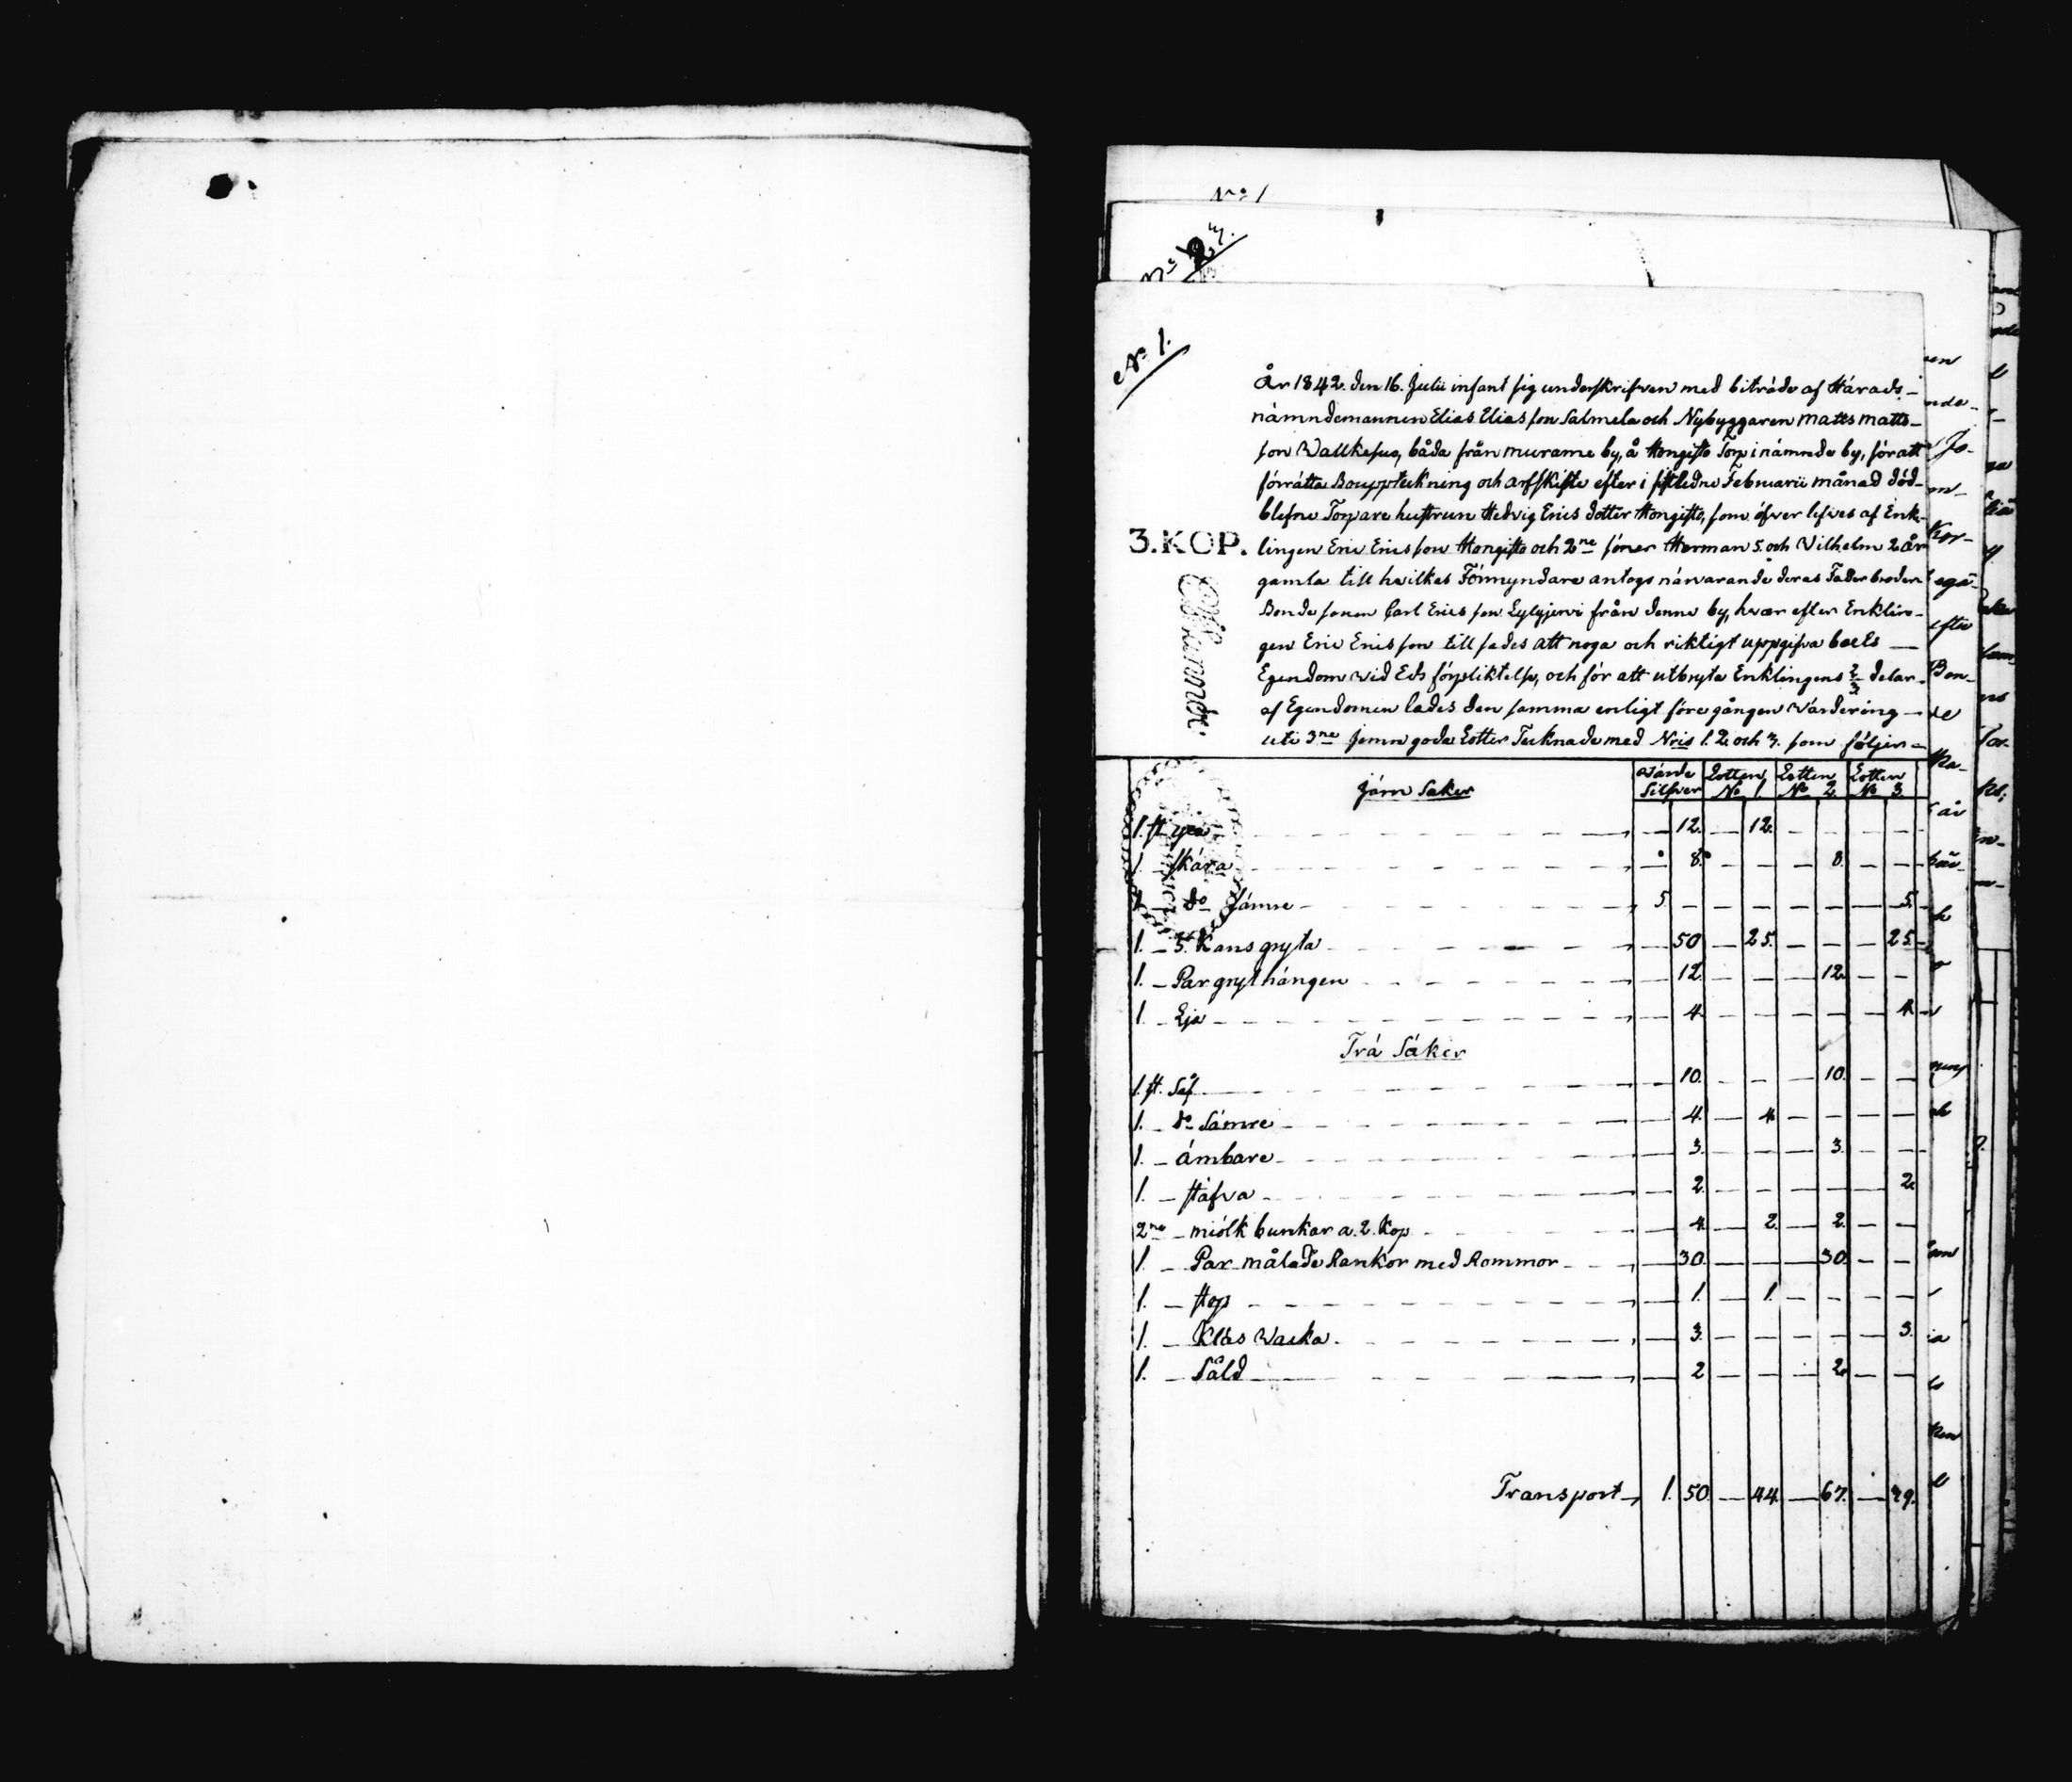 No 1
No 23.
No 1.
År 1842. den 16. Julii infant sig underskrifven med biträde af Härads-
nämndemannen Elias Elias son Salmela och Nybyggaren Matts Matts-
son Wallkesuo, båda från Murame by, å Hongisto Torp i nämnde by, för att
förrätta Bouppteckning och arfskifte efter i sistledne Februarii månad död-
blefne Torpare hustrun Hedvig Erics dotter Hongisto, som öfver lefves af Enk-
3.KOP. lingen Eric Ericsson Hongisto och 2ne söner Herman 5. och Vilhelm 2 år
gamla till hvilkas Förmyndare antogs närvarande deras Faderbroder
Bonde sonen Carl Erics son Lylyjervi från denne by, hvar efter Enklin-
gen Eric Erics son till sades att noga och riktigt uppgifva boets
Egendom wid Eds förpliktelse, och för att utbryta Enklingens 2/3 delar
af Egendomen lades den samma enligt före gången Värdering
uti 3ne jemn goda Lotter Tecknade med Nris 1. 2. och 3. som följer
Järn Saker Värde Silfver Lotten No 1 Lotten No 2. Lotten No 3.
1. st yxa 12. 12.
1 skära 8. 8.
1 do Sämre 5. 5.
1. 3. Kans gryta 50 25. 25.
1. Par gryt hängen 12. 12.
1. Lja 4. 4.
Trä Saker
1. st. Så 10. 10.
1. do Sämre 4. 4.
1. ämbare 3. 3.
1. stäfva 2. 2.
2ne miölk bunkar a. 2. kop 4. 2. 2.
1. Par målade Rankor med Rommor 30. 30.
1. stop 1. 1.
1. Kläs Wacka 3. 3.
1. Såld 2 2.
Transport 1. 50. 44. 67. 39.